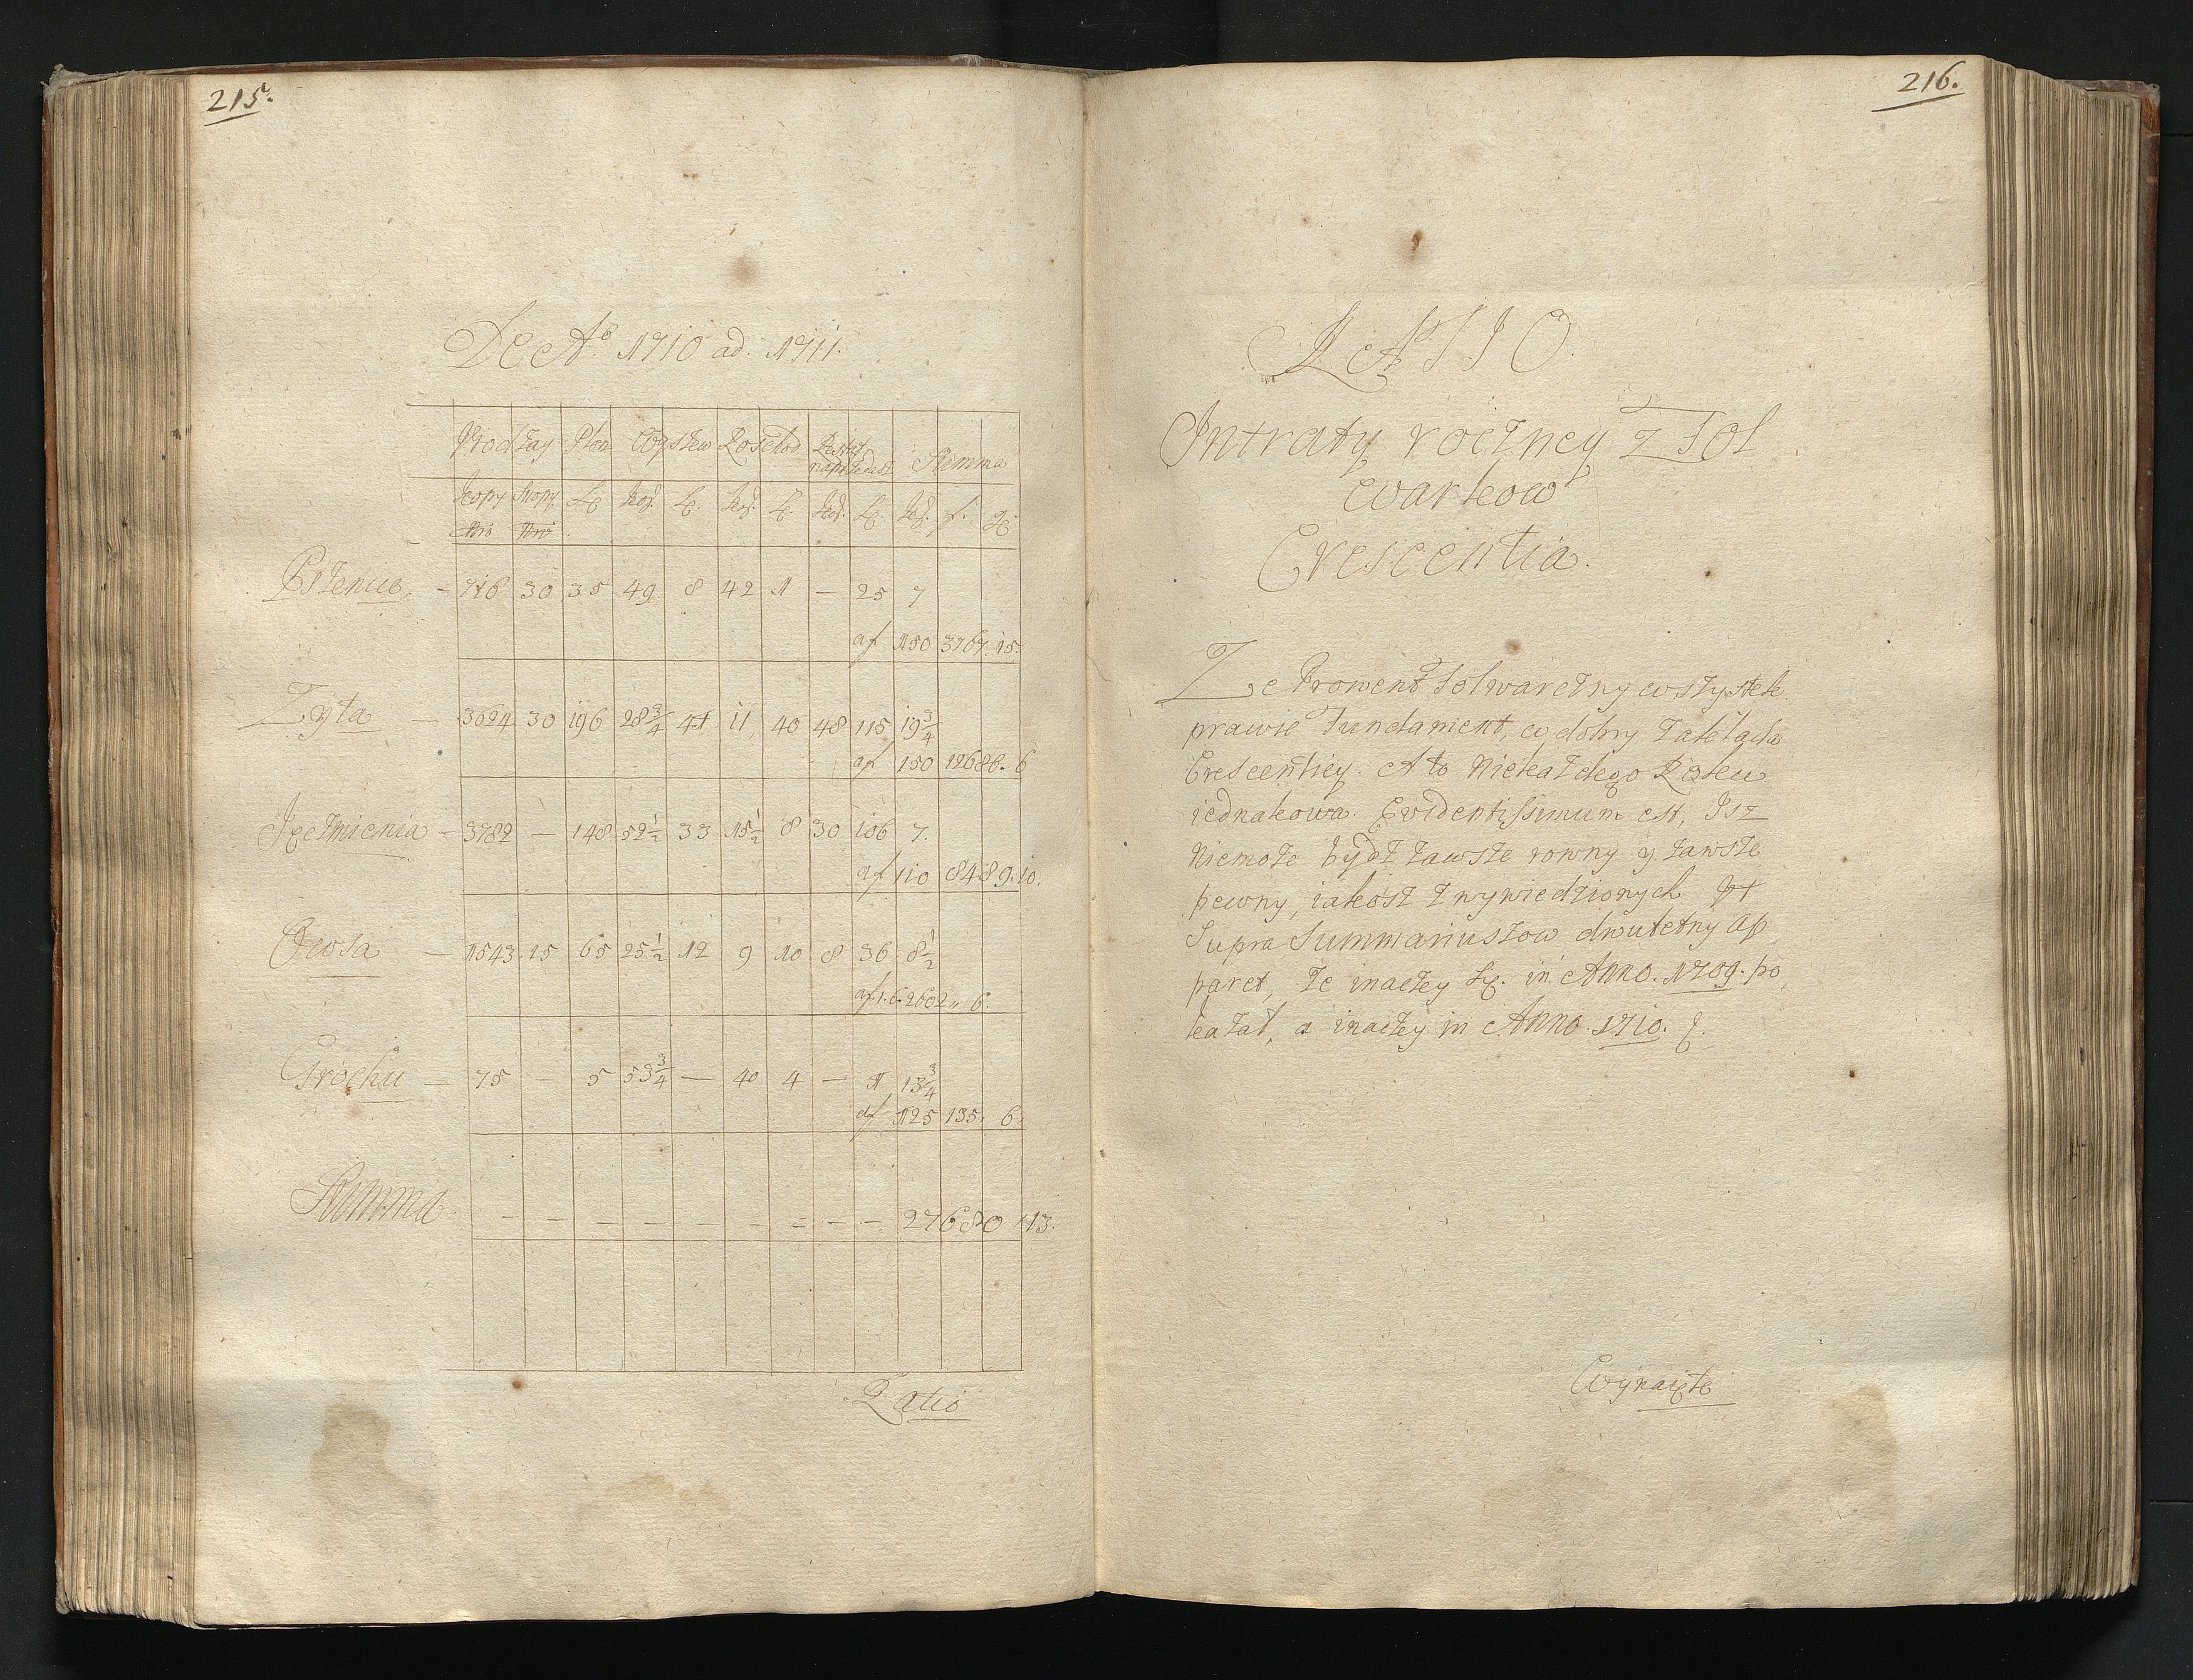 215.
De Aº 1710 ad. 1711.
Vrodzay Plon Wysiew Roschod Restat na przedasz Summa
Kopy Kopy Ł. Kor. Ł. Kor. Ł. Kor. Ł. Kor. f. gr.
Pszenice - 716 30 35 49 8 42 11 — 25 7
af 150 3767. 15.
Zyta — 3624 30 196 28 3/4 41 11 40 48 115 19 3/4
af 150 12686. 6
Jęczmienia - 3782 — 148 52 1/2 33 15 1/2 8 30 106 7.
af 110 8489. 10.
Owsa — 1543. 15 65 25 1/2 12 9 10 8 36 8 1/2
af. 1.6. 2602 „ 6.
Grochu — 75 — 5 53 3/4 — 40 4 — 1 13 3/4
af 125 135. 6.
Summa - - - - - - = - - 27680 „ 13.
Ratio
216.
RATIO.
Intraty roczney z Fol
warkow
Crescentia.
Ze Prowent folwareczny wszystek
prawie Fundament, w dobry zaklada
Crescentiey. A to Niekażdego Roku
iednakowa. Evidentissimum est, Isz
Niemoże bydź zawsze rowny y zawsze
pewny, iakosz z wywiedzionych Vt
Supra Summariuszow dwuletny ap
paret, że inaczey Sę. in Anno. 1709. po,
kazał, a inaczey in Anno. 1710. f.
Wynaięte